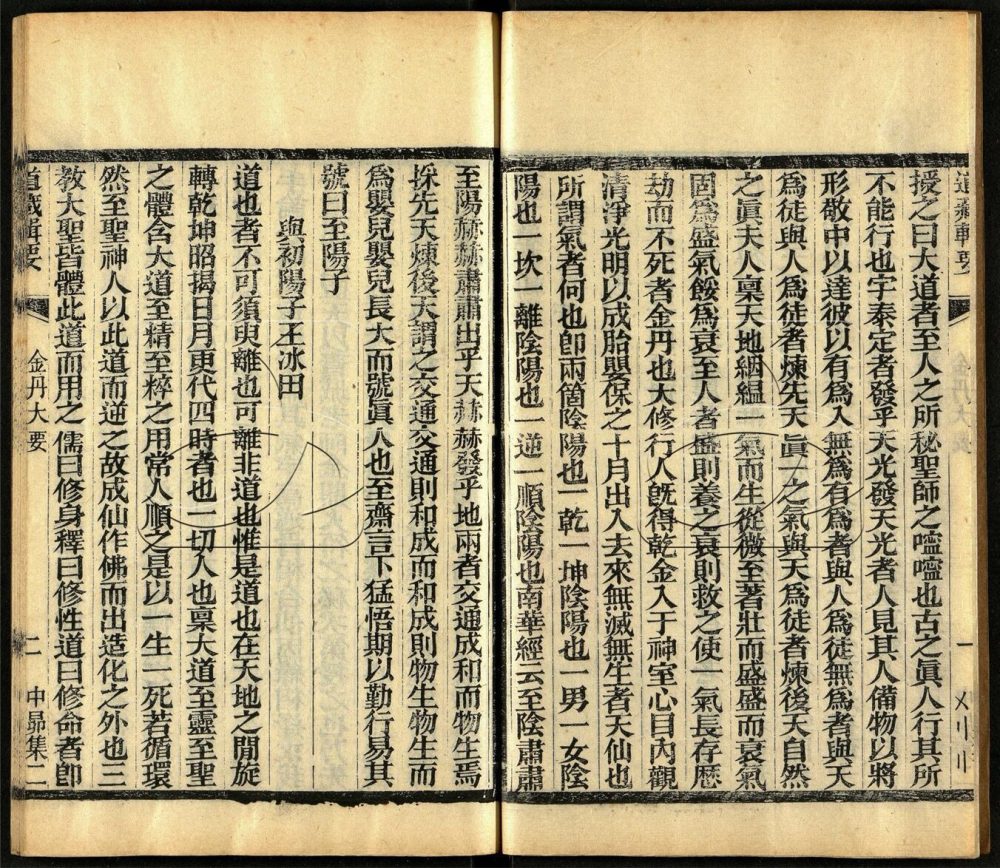 道藏輯要
授之曰大道者至人之所秘聖師之嗑嗑也古之眞人行其所
不能行也宇泰定者發乎天光發天光者人見其人備物以將
形敬中以達彼以有爲入無爲有爲者與人爲徒無爲者與天
爲徒與人爲徒者煉先天眞一之氣與天爲徒者煉後天自然
之眞夫人稟天地絪縕一氣而生從微至著壯而盛盛而衰氣
固爲盛氣餒爲衰至人者盛則養之衰則救之使一氣長存歷
劫而不死者金丹也大修行人旣得乾金入于神室心目內觀
清淨光明以成胎嬰保之十月出入去來無滅無生者天仙也
所謂氣者何也卽兩箇陰陽也一乾一坤陰陽也一男一女陰
陽也一坎一離陰陽也一逆一順陰陽也南華經云至陰肅肅
至陽赫赫肅肅出乎天赫赫發乎地兩者交通成和而物生焉
採先天煉後天謂之交通交通則和成而和成則物生物生而
爲嬰兒嬰兒長大而號眞人也至齋言下猛悟期以勤行易其
號曰至陽子
與初陽子王冰田
道也者不可須臾離也可離非道也惟是道也在天地之間旋
轉乾坤昭揭日月更代四時者也一切人也稟大道至靈至聖
之體含大道至精至粹之用常人順之是以一生一死若循環
然至聖神人以此道而逆之故成仙作佛而出造化之外也三
教大聖皆體此道而用之儒曰修身釋曰修性道曰修命者卽
道藏輯要
金丹大要
二
中昴集二